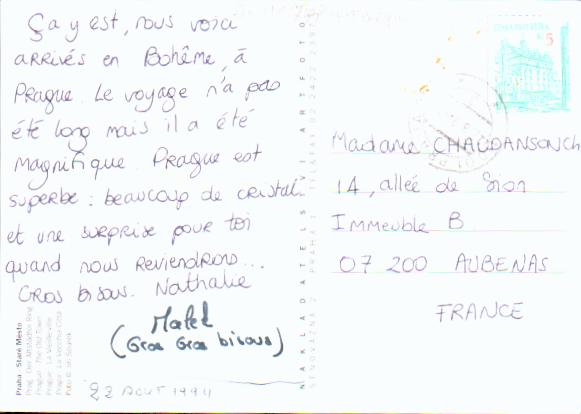 Ça y est, nous voici
arrivés en Bohême, à
Prague. Le voyage n'a pas
été long mais il a été
magnifique. Prague est
superbe : beaucoup de cristal
et une surprise pour toi
quand nous reviendrons...
Gros bisous. Nathalie
(Gros Gros bisous)
22 AOUT 1994
Praha - Staré Město
Prag - Der Altstädter Ring
Prague - The Old Town
NAKLADATELSTVÍ ARTFOTO
5
Madame
14, allée de Sion
Immeuble B
07 200 AUBENAS
FRANCE